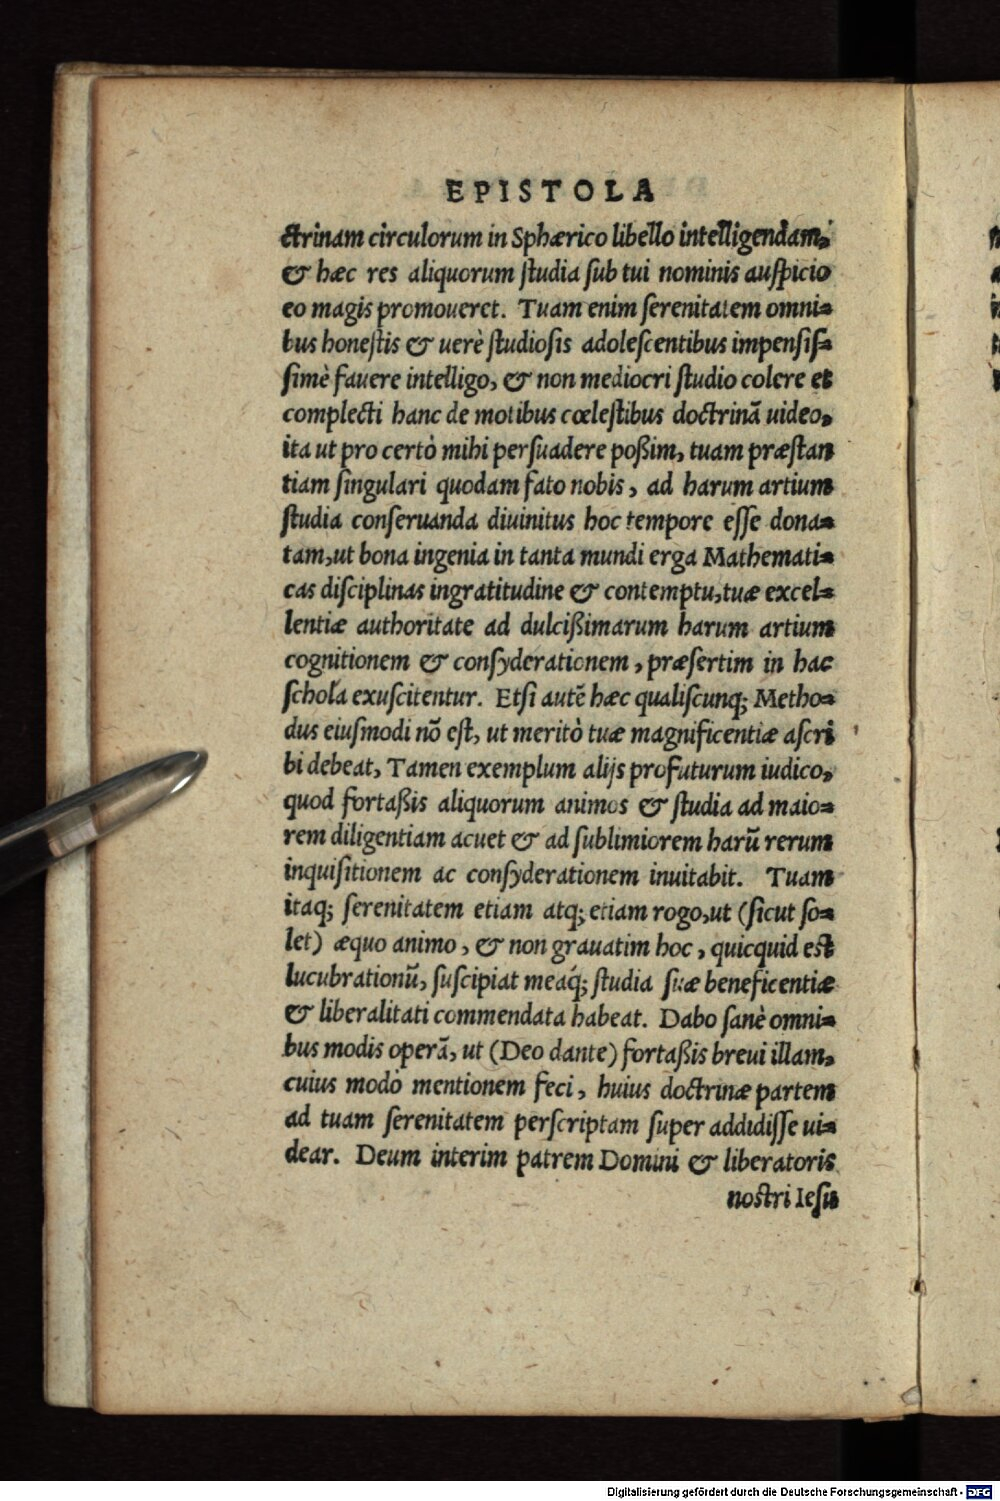 EPISTOLA
ctrinam circulorum in Sphærico libello intelligendam,
& hæc res aliquorum ſtudia ſub tui nominis auſpicio
eo magis promoueret. Tuam enim ſerenitatem omni=
bus honeſtis & uerè ſtudioſis adoleſcentibus impenſiſ=
ſimè fauere intelligo, & non mediocri ſtudio colere et
complecti hanc de motibus cœleſtibus doctrinã uideo,
ita ut pro certò mihi perſuadere poßim, tuam præſtan
tiam ſingulari quodam fato nobis, ad harum artium
ſtudia conſeruanda diuinitus hoc tempore eſſe dona=
tam, ut bona ingenia in tanta mundi erga Mathemati=
cas diſciplinas ingratitudine & contemptu, tuæ excel=
lentiæ authoritate ad dulcißimarum harum artium
cognitionem & conſyderationem, præſertim in hac
ſchola exuſcitentur. Etſi autẽ hæc qualiſcunq; Metho=
dus eiuſmodi nõ eſt, ut meritò tuæ magnificentiæ aſcri
bi debeat, Tamen exemplum alijs profuturum iudico,
quod fortaßis aliquorum animos & ſtudia ad maio=
rem diligentiam acuet & ad ſublimiorem harũ rerum
inquiſitionem ac conſyderationem inuitabit. Tuam
itaq; ſerenitatem etiam atq; etiam rogo, ut (ſicut ſo=
let) æquo animo, & non grauatim hoc, quicquid eſt
lucubrationũ, ſuſcipiat meaq́; ſtudia ſuæ beneficentiæ
& liberalitati commendata habeat. Dabo ſanè omni=
bus modis operã, ut (Deo dante) fortaßis breui illam,
cuius modò mentionem feci, huius doctrinæ partem
ad tuam ſerenitatem perſcriptam ſuper addidiſſe ui=
dear. Deum interim patrem Domini & liberatoris
noſtri Ieſu
Digitalisierung gefördert durch die Deutsche Forschungsgemeinschaft - DFG